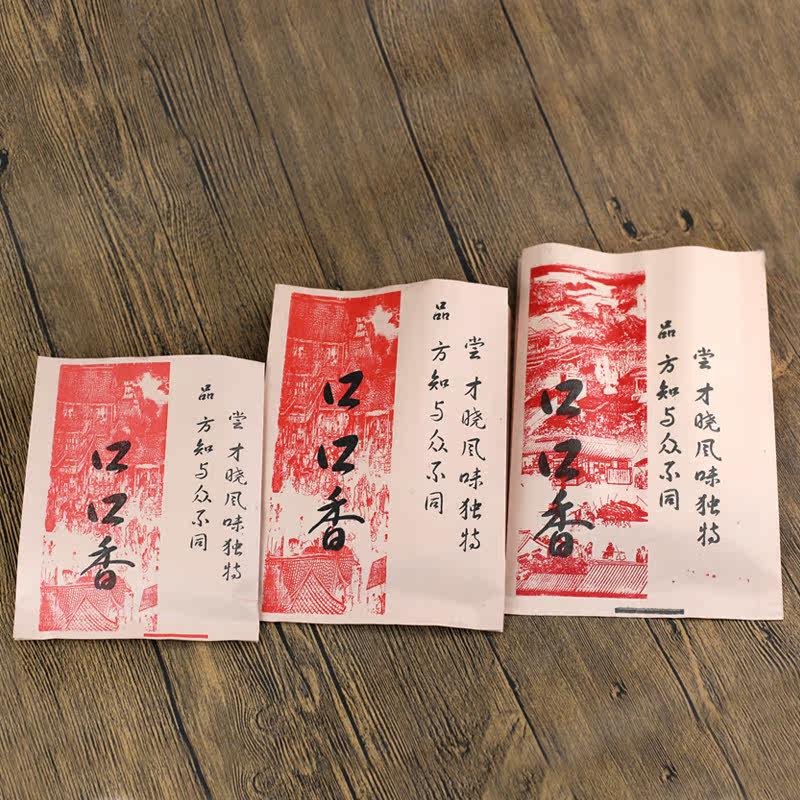 口口香
品方知与众不同
尝才晓风味独特
口口香
品方知与众不同
尝才晓风味独特
口口香
品方知与众不同
尝才晓风味独特